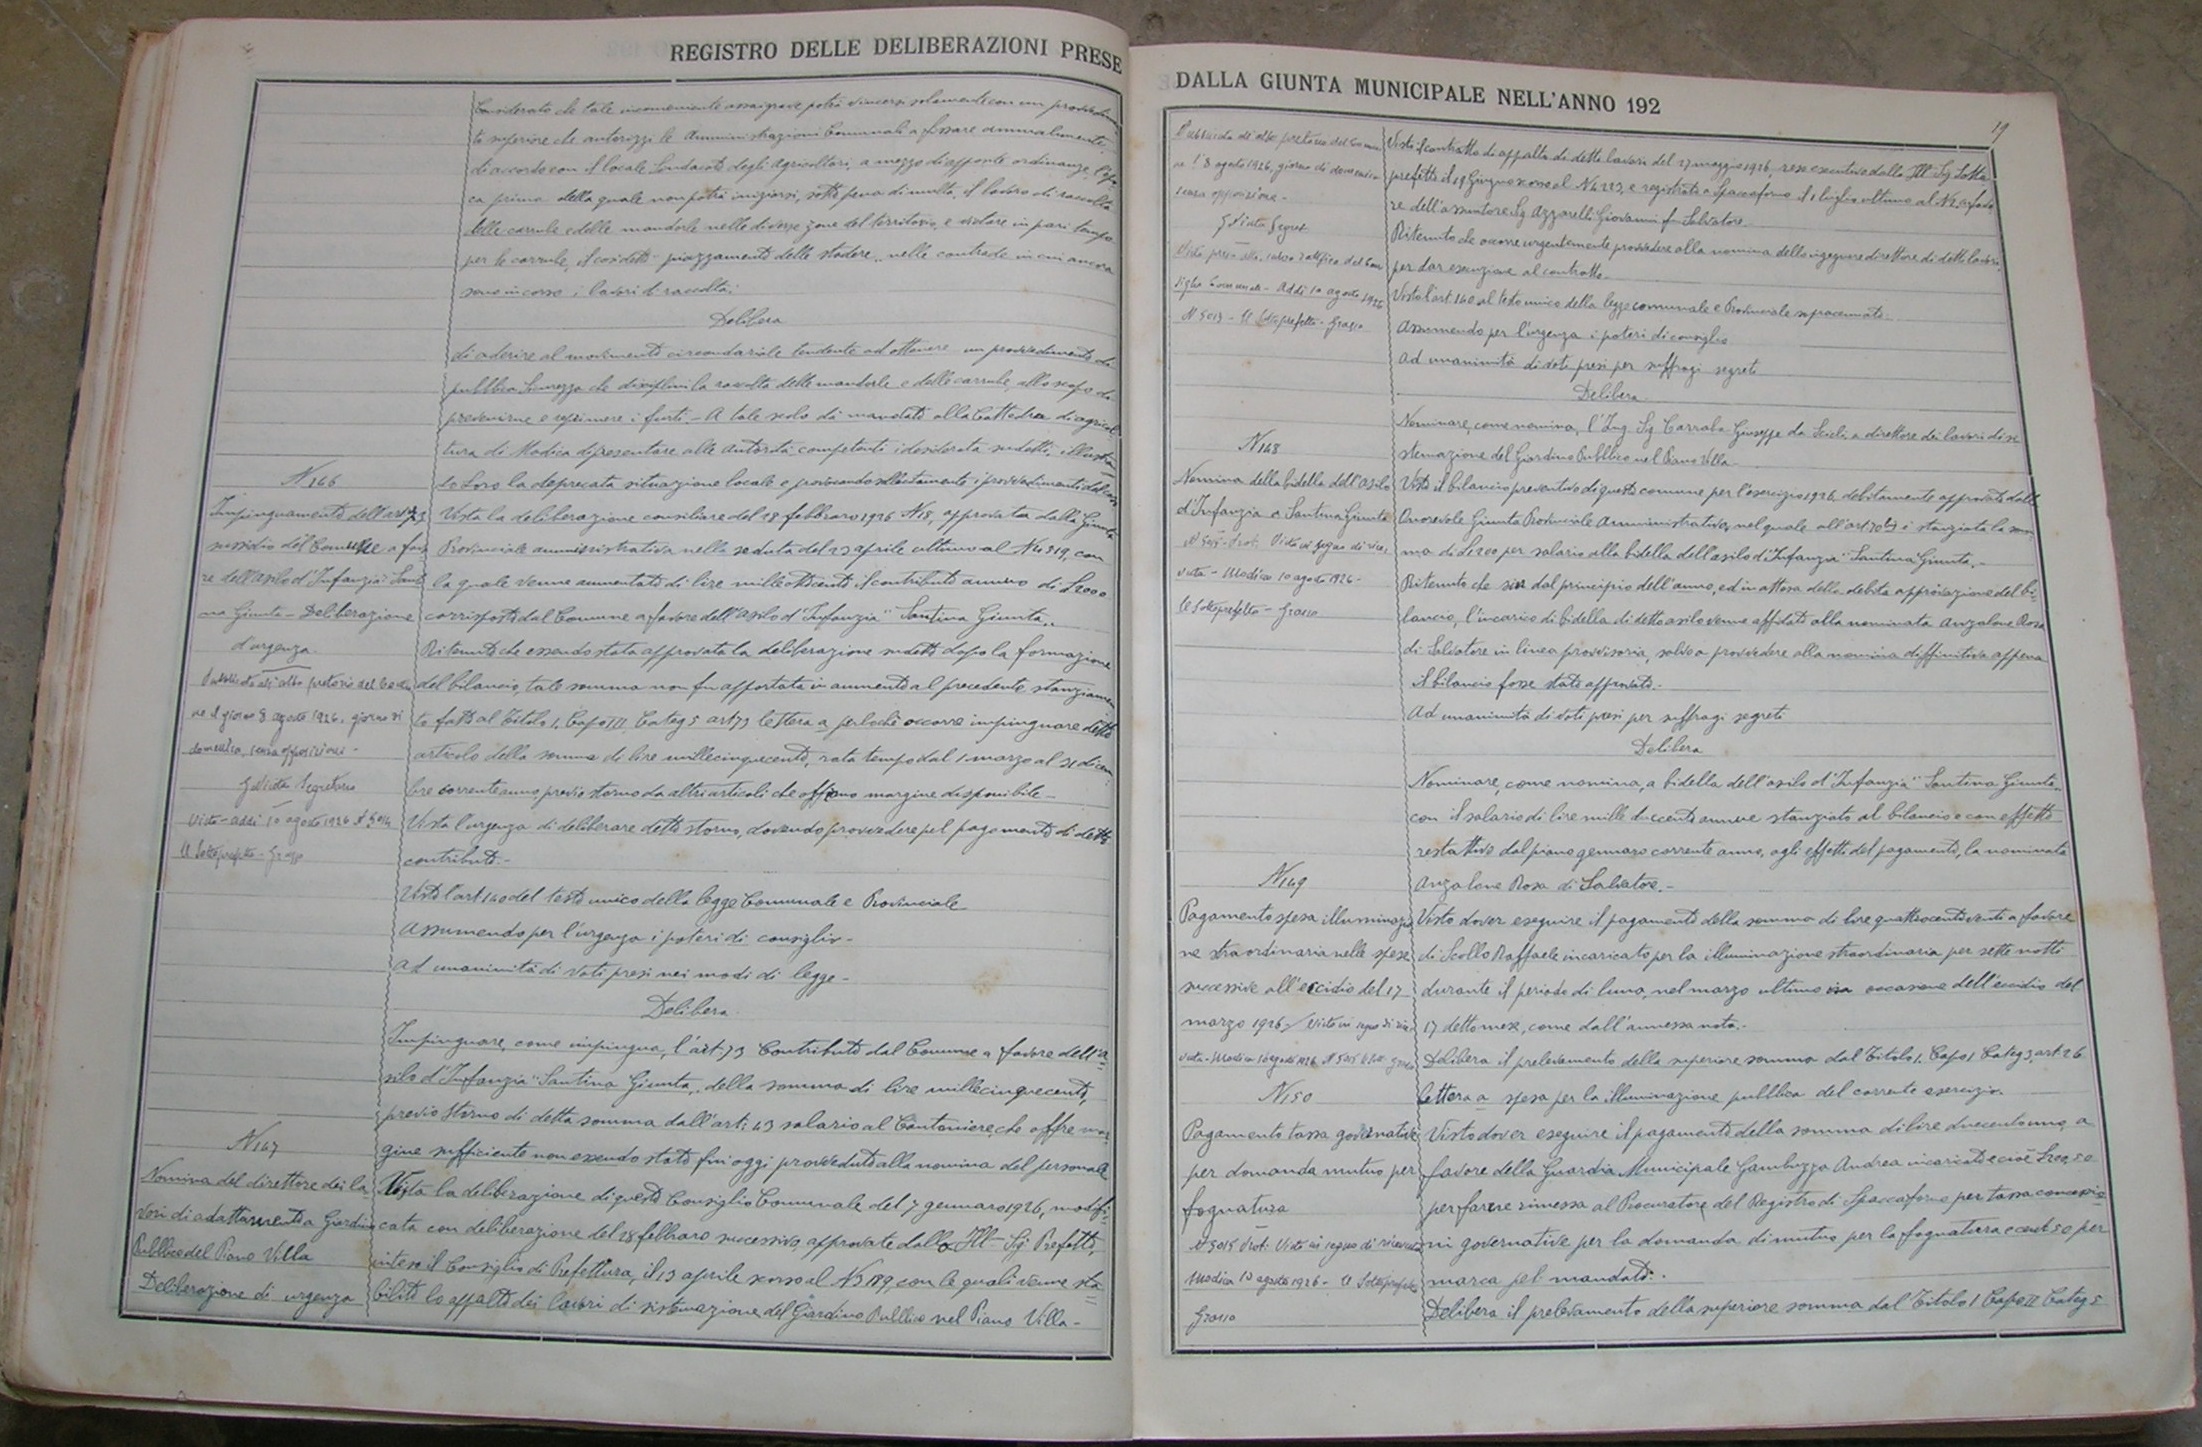 REGISTRO DELLE DELIBERAZIONI PRESE
Considerato che tale inconveniente assai grave potrà vincersi solamente con un provvedimen
to superiore che autorizzi le Amministrazioni Comunali a fissare annualmente,
di accordo con il locale Sindacato degli Agricoltori, a mezzo di apposite ordinanze, l'epo
ca prima della quale non potrà iniziarsi, sotto pena di multa, il lavoro di raccolta
delle carrube e delle mandorle nelle diverse zone del territorio e vietare in pari tempo
per le carrube, il cosidetto piazzamento delle stadere, nelle contrade in cui ancora
sono in corso i lavori di raccolta;
Delibera
di aderire al movimento circondariale tendente ad ottenere un provvedimento di
pubblica Sicurezza che disciplini la raccolta delle mandorle e delle carrube, allo scopo di
prevenirne e reprimere i furti - A tale scopo dà mandato alla Cattedra di agricol
tura di Modica di presentare alle Autorità competenti i desiderata sudetti, illustran
do loro la deprecata situazione locale e provocando sollecitamente i provvedimenti del caso
N 146
Impinguamento dell'art 73
sussidio del Comune a favo
re dell'asilo d'Infanzia Santi
na Giunta - Deliberazione
d'urgenza.
Pubblicata all'albo pretorio del Comu
ne il giorno 8 agosto 1926, giorno di
domenica, senza opposizioni -
Segretario
Visto - addì 10 agosto 1926 N 5014
Il Sottoprefetto - Grasso
Vista la deliberazione consiliare del 28 febbraro 1926 N 18, approvata dalla Giunta
Provinciale amministrativa nella seduta del 23 aprile ultimo al N 4319, con
la quale venne aumentato di lire milleottocento il contributo annuo di £ 2000
corrisposto dal Comune a favore dell'asilo d'Infanzia "Santina Giunta"
Ritenuto che essendo stata approvata la deliberazione sudetta dopo la formazione
del bilancio, tale somma non fu apportata in aumento al precedente stanziamen
to fatto al Titolo I, Capo III Categ 5 art 73 lettera a perlochè occorre impinguare detto
articolo della somma di lire millecinquecento, rata tempo dal 1 marzo al 31 dicem
bre corrente anno previo storno da altri articoli che offrano margine disponibile -
Vista l'urgenza di deliberare detto storno, dovendo provvedere pel pagamento di detto
contributo -
Visto l'art 140 del testo unico della legge Comunale e Provinciale
Assumendo per l'urgenza i poteri di consiglio -
ad unanimità di voti presi nei modi di legge -
Delibera
Impinguare, come impingua, l'art. 73 Contributo dal Comune a favore dell'a
silo d'Infanzia "Santina Giunta", della somma di lire millecinquecento,
previo storno di detta somma dall'art: 43 salario al Cantoniere, che offre mar
gine sufficiente non essendo stato fin'oggi provveduto alla nomina del personale
N 147
Nomina del direttore dei la
vori di adattamento a Giardino
Pubblico del Piano Villa
Deliberazione di urgenza
Vista la deliberazione di questo Consiglio Comunale del 7 gennaro 1926, modifi
cata con deliberazione del 28 febbraro successivo, approvate dallo Ill- Sig Prefetto,
inteso il Consiglio di Prefettura, il 13 aprile scorso al N 3189, con le quali venne sta
bilito lo appalto dei lavori di sistemazione del Giardino Pubblico nel Piano Villa -
DALLA GIUNTA MUNICIPALE NELL'ANNO 192
19
Pubblicata all'albo pretorio del Comu
ne l'8 agosto 1926, giorno di domenica
senza opposizione -
Segret
Visto, presa atto, salvo ratifica del Con
siglio Comunale - Addì 10 agosto 1926
N 5013 - Il Sottoprefetto - Grasso
Visto il contratto di appalto di detti lavori del 27 maggio 1926, reso esecutivo dallo Ill- Sig Sotto
prefetto il 19 Giugno scorso al N 4223, e registrato a Spaccaforno il 1 luglio ultimo al N 2, a favo
re dell'assuntore Sig Azzarelli Giovanni fu Salvatore
Ritenuto che occorre urgentemente provvedere alla nomina dello ingegnere direttore di detti lavori,
per dar esecuzione al contratto.
Visto l'art 140 al testo unico della legge comunale e Provinciale sopracennato
Assumendo per l'urgenza i poteri di consiglio
ad unanimità di voti presi per suffragi segreti
Delibera
Nominare, come nomina, l'Ing Sig Carrabba Giuseppe da Scicli a direttore dei lavori di si
stemazione del Giardino Pubblico nel Piano Villa
N 148
Nomina della bidella dell'asilo
d'Infanzia a Santina Giunta
N 5015 - Prot. Visto in segno di rice
vuta - Modica 10 agosto 1926 -
Il Sottoprefetto - Grasso
Visto il bilancio preventivo di questo comune per l'esercizio 1926 debitamente approvato dalla
Onorevole Giunta Provinciale Amministrativa, nel quale all'art. 70 è stanziata la som
ma di £ 1200 per salario alla bidella dell'asilo d'Infanzia "Santina Giunta" -
Ritenuto che sin dal principio dell'anno, ed in attesa della debita approvazione del bi
lancio, l'incarico di bidella di detto asilo venne affidato alla nominata Anzalone Rosa
di Salvatore in linea provvisoria, salvo a provvedere alla nomina diffinitiva appena
il bilancio fosse stato approvato. -
Ad unanimità di voti presi per suffragi segreti
Delibera
Nominare, come nomina, a bidella dell'asilo d'Infanzia "Santina Giunta"
con il salario di lire mille duecento annue stanziato al bilancio e con effetto
restattivo dal primo gennaro corrente anno, agli effetti del pagamento, la nominata
Anzalone Rosa di Salvatore. -
N 149
Pagamento spesa illuminazio
ne straordinaria nelle spese
successive all'eccidio del 17
marzo 1926 / Visto in segno di rice
vuta - Modica 10 agosto 1926 N 5015 Il Sott. Grasso
Visto dover eseguire il pagamento della somma di lire quattrocentoventi a favore
di Scollo Raffaele incaricato per la illuminazione straordinaria per sette notti
durante il periodo di luna, nel marzo ultimo in occasione dell'eccidio del
17 detto mese, come dall'annessa nota. -
Delibera il prelevamento della superiore somma dal Titolo I. Capo I Categ 3, art. 26
lettera a spesa per la illuminazione pubblica del corrente esercizio.
N 150
Pagamento tassa governativa
per domanda mutuo per
fognatura
N 5015 Prot: Visto in segno di ricevuta
Modica 10 agosto 1926 - Il Sottoprefetto
Grasso
Visto dover eseguire il pagamento della somma di lire duecentouno, a
favore della Guardia Municipale Gambuzza Andrea incaricato e cioè £ 200,50
per farne rimessa al Procuratore del Registro di Spaccaforno per tassa concessio
ni governative per la domanda di mutuo per la fognatura e cent 50 per
marca pel mandato. -
Delibera il prelevamento della superiore somma dal Titolo I Capo II Categ 5